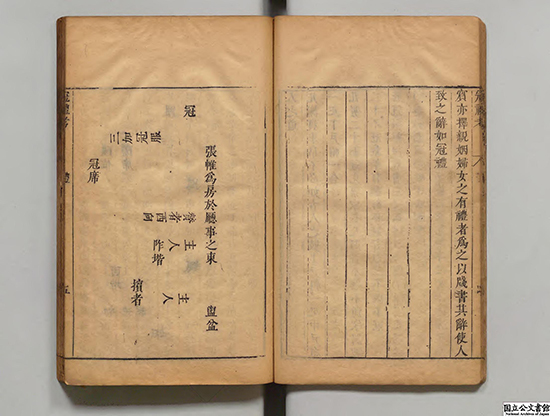 賓亦擇親姻婦女之有禮者為之以牋書其辭使人
致之辭如冠禮
冠
三加冠服
冠席
張帷為房於廳事之東
賛者西向
主人
阼堦
主人
擯者
盥盆
禮
五
国立公文書館
National Archives of Japan